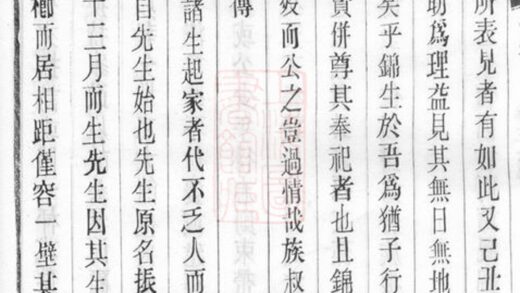 所表見者有如此又己丑
助爲理益見其無日無地
矣乎錦生於吾爲猶子行
併尊其奉祀者也且錦
而公之豈過情哉族叔
傳
諸生起家者代不乏人而
自先生始也先生原名振
十三月而生先生因其生
櫛而居相距僅容一壁